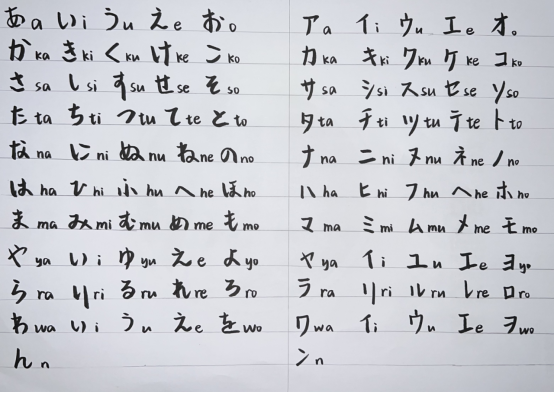 あa いi うu えe おo ア a イi ウu エe オo
かka きki くku けke こko カka キki クku ケke コko
さsa しsi すsu せse そso サsa シsi スsu セse ソso
たta ちti つtu てte とto タta チti ツtu テte トto
なna にni ぬnu ねne のno ナna ニni ヌnu ネne ノno
はha ひhi ふhu へhe ほho ハha ヒhi フhu へhe ホho
まma みmi むmu めme もmo マma ミmi ムmu メme モmo
やya いi ゆyu えe よyo ヤya イi ユu エe ヨyo
らra りri るru れre ろro ラra リri ルru レre ロro
わwa いi うu えe をwo ワwa イi ウu エe ヲwo
んn ンn